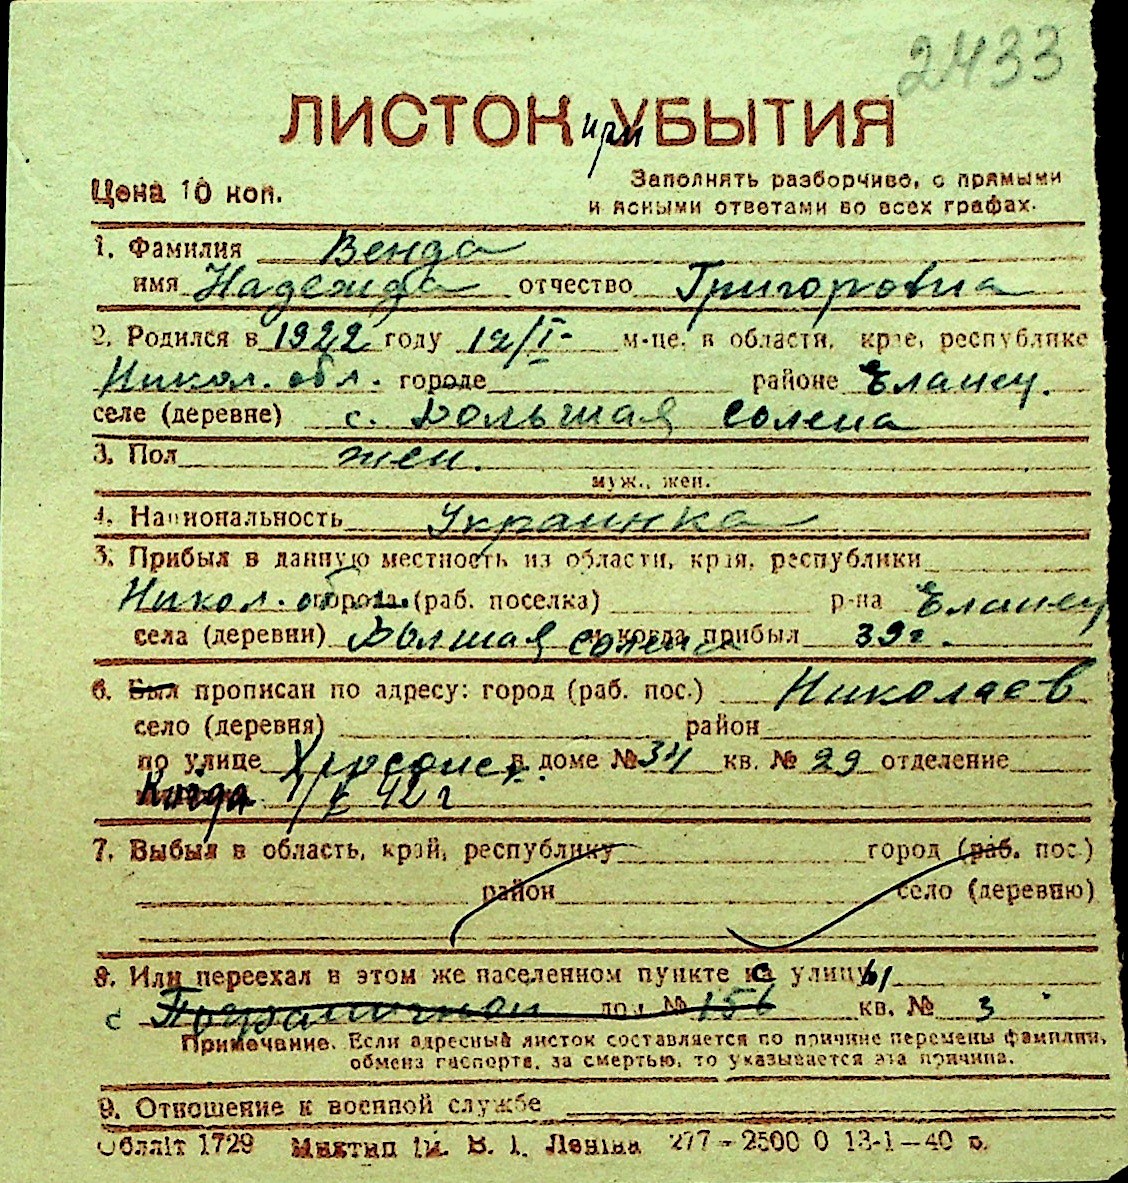 2433
ЛИСТОК при УБЫТИЯ
Цена 10 коп.
Заполнять разборчиво, с прямыми
и ясными ответами во всех графах.
1. Фамилия Венда
имя Надежда отчество Григоровна
2. Родился в 1922 году 12/I- м-це, в области, крае, республике
Никол. обл. городе районе Еланец.
селе (деревне) с. Большая Солена
3. Пол жен.
муж., жен.
4. Национальность Украинка
5. Прибыл в данную местность из области, края, республики
Никол. обл. города (раб. поселка) р-на Еланец
села (деревни) Болшая солена и когда прибыл 39г.
6. Был прописан по адресу: город (раб. пос.) Николаев
село (деревня) район
по улице Херсонск. в доме № 34 кв. № 29 отделение
Когда 42 г
7. Выбыл в область, край, республику город (раб. пос.)
район село (деревню)
8. Или переехал в этом же населенном пункте с улицы
с Пограничной дом № 156 кв. № 3
Примечание. Если адресный листок составляется по причине перемены фамилии,
обмена паспорта, за смертью, то указывается эта причина.
9. Отношение к военной службе
Облліт 1729 Миктип ім. В. І. Леніна 277-2500 0 13-1-40 р.